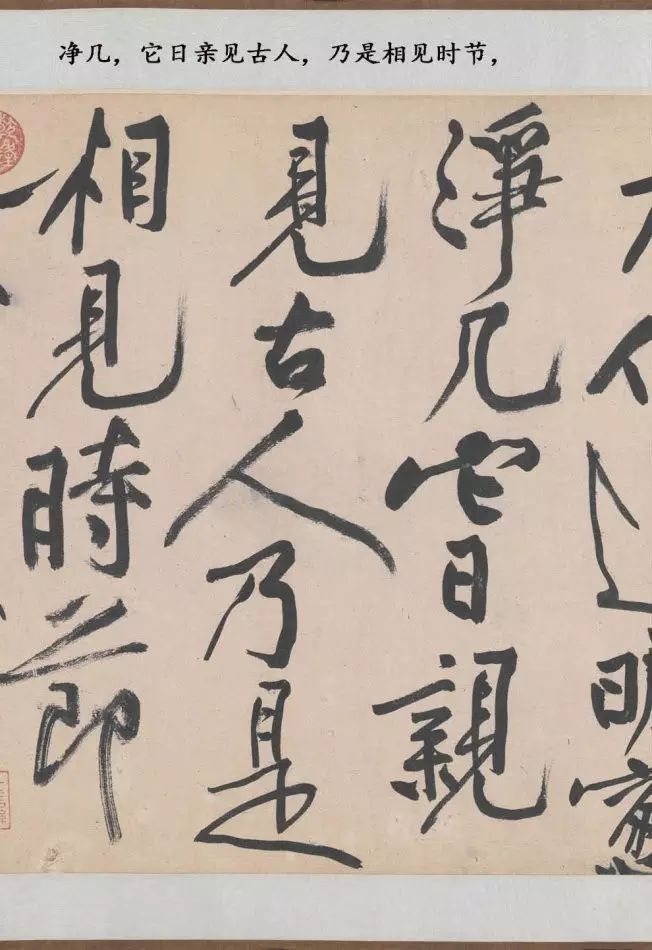 净几，它日亲见古人，乃是相见时节，
明窗
淨几它日親
見古人乃是
相見時節